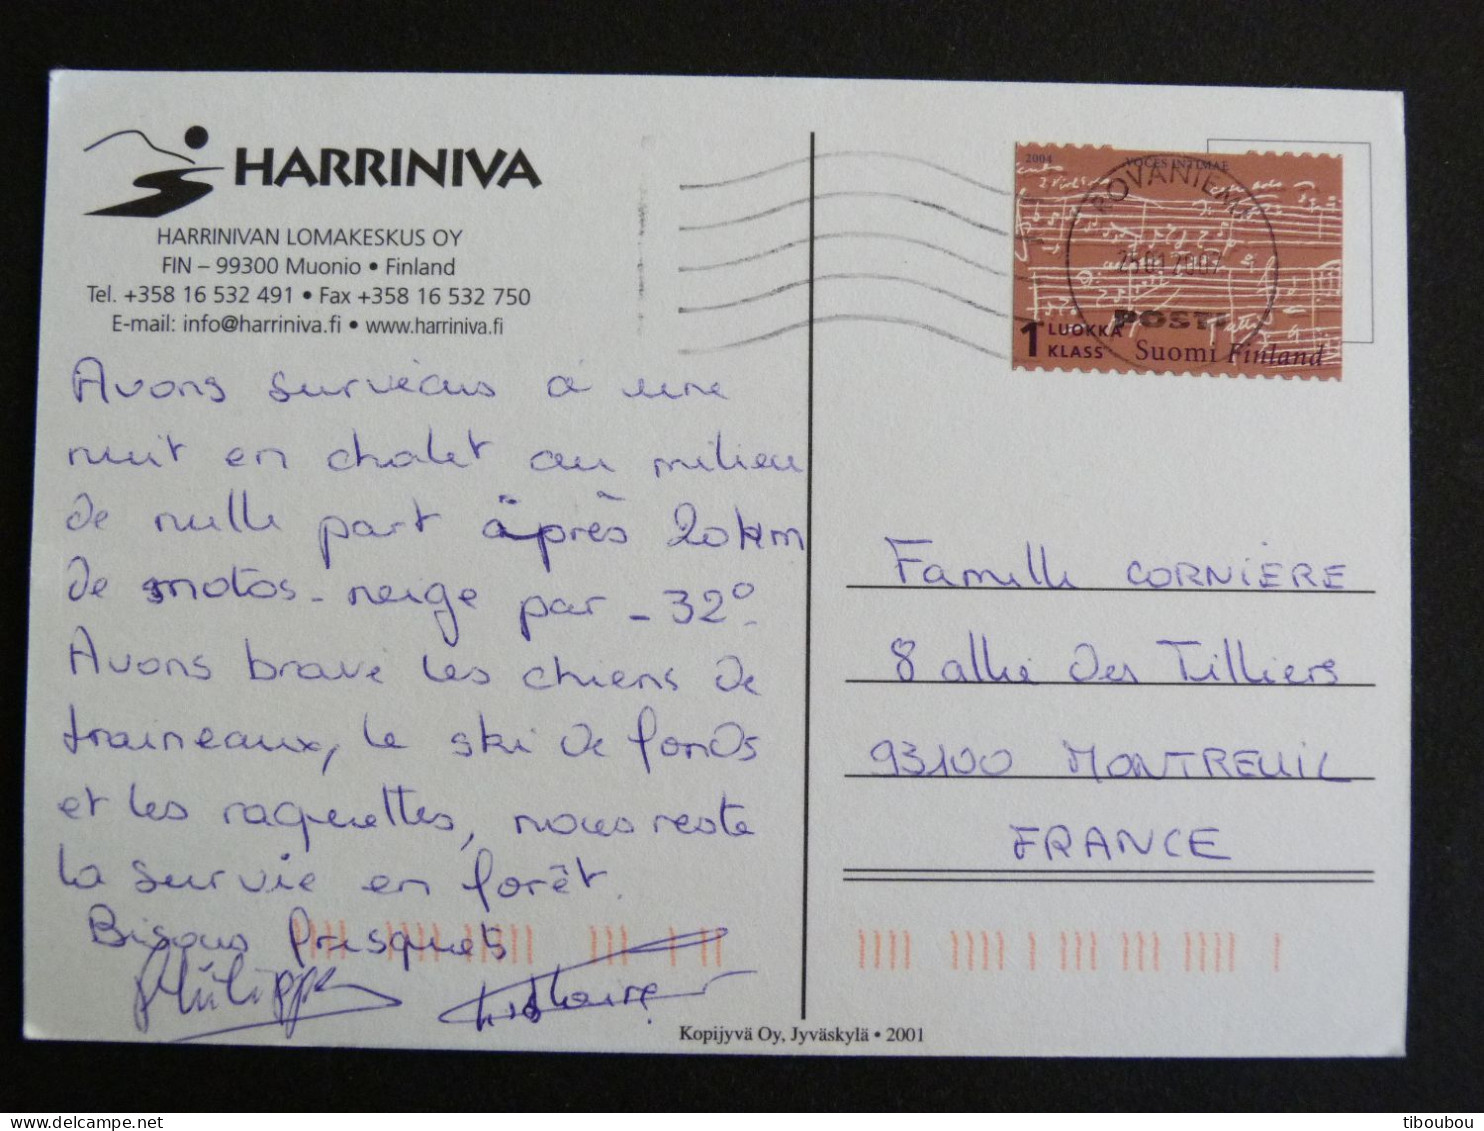 HARRINIVA
HARRINIVAN LOMAKESKUS OY
FIN – 99300 Muonio • Finland
Tel. +358 16 532 491 • Fax +358 16 532 750
E-mail: info@harriniva.fi • www.harriniva.fi
Avons survécus à une
nuit en chalet au milieu
de nulle part après 20km
de motos-neige par -32°.
Avons bravé les chiens de
traineaux, le ski de fonds
et les raquettes, nous reste
la survie en forêt.
Bisous frisquets
Philippe
2004 VOCES INTIMAE
ROVANIEMI
25.01.2007
POSTI
1 LUOKKA
KLASS
Suomi Finland
Famille CORNIÈRE
8 allée des Tilliers
93100 MONTREUIL
FRANCE
Kopijyvä Oy, Jyväskylä • 2001
tiboubou